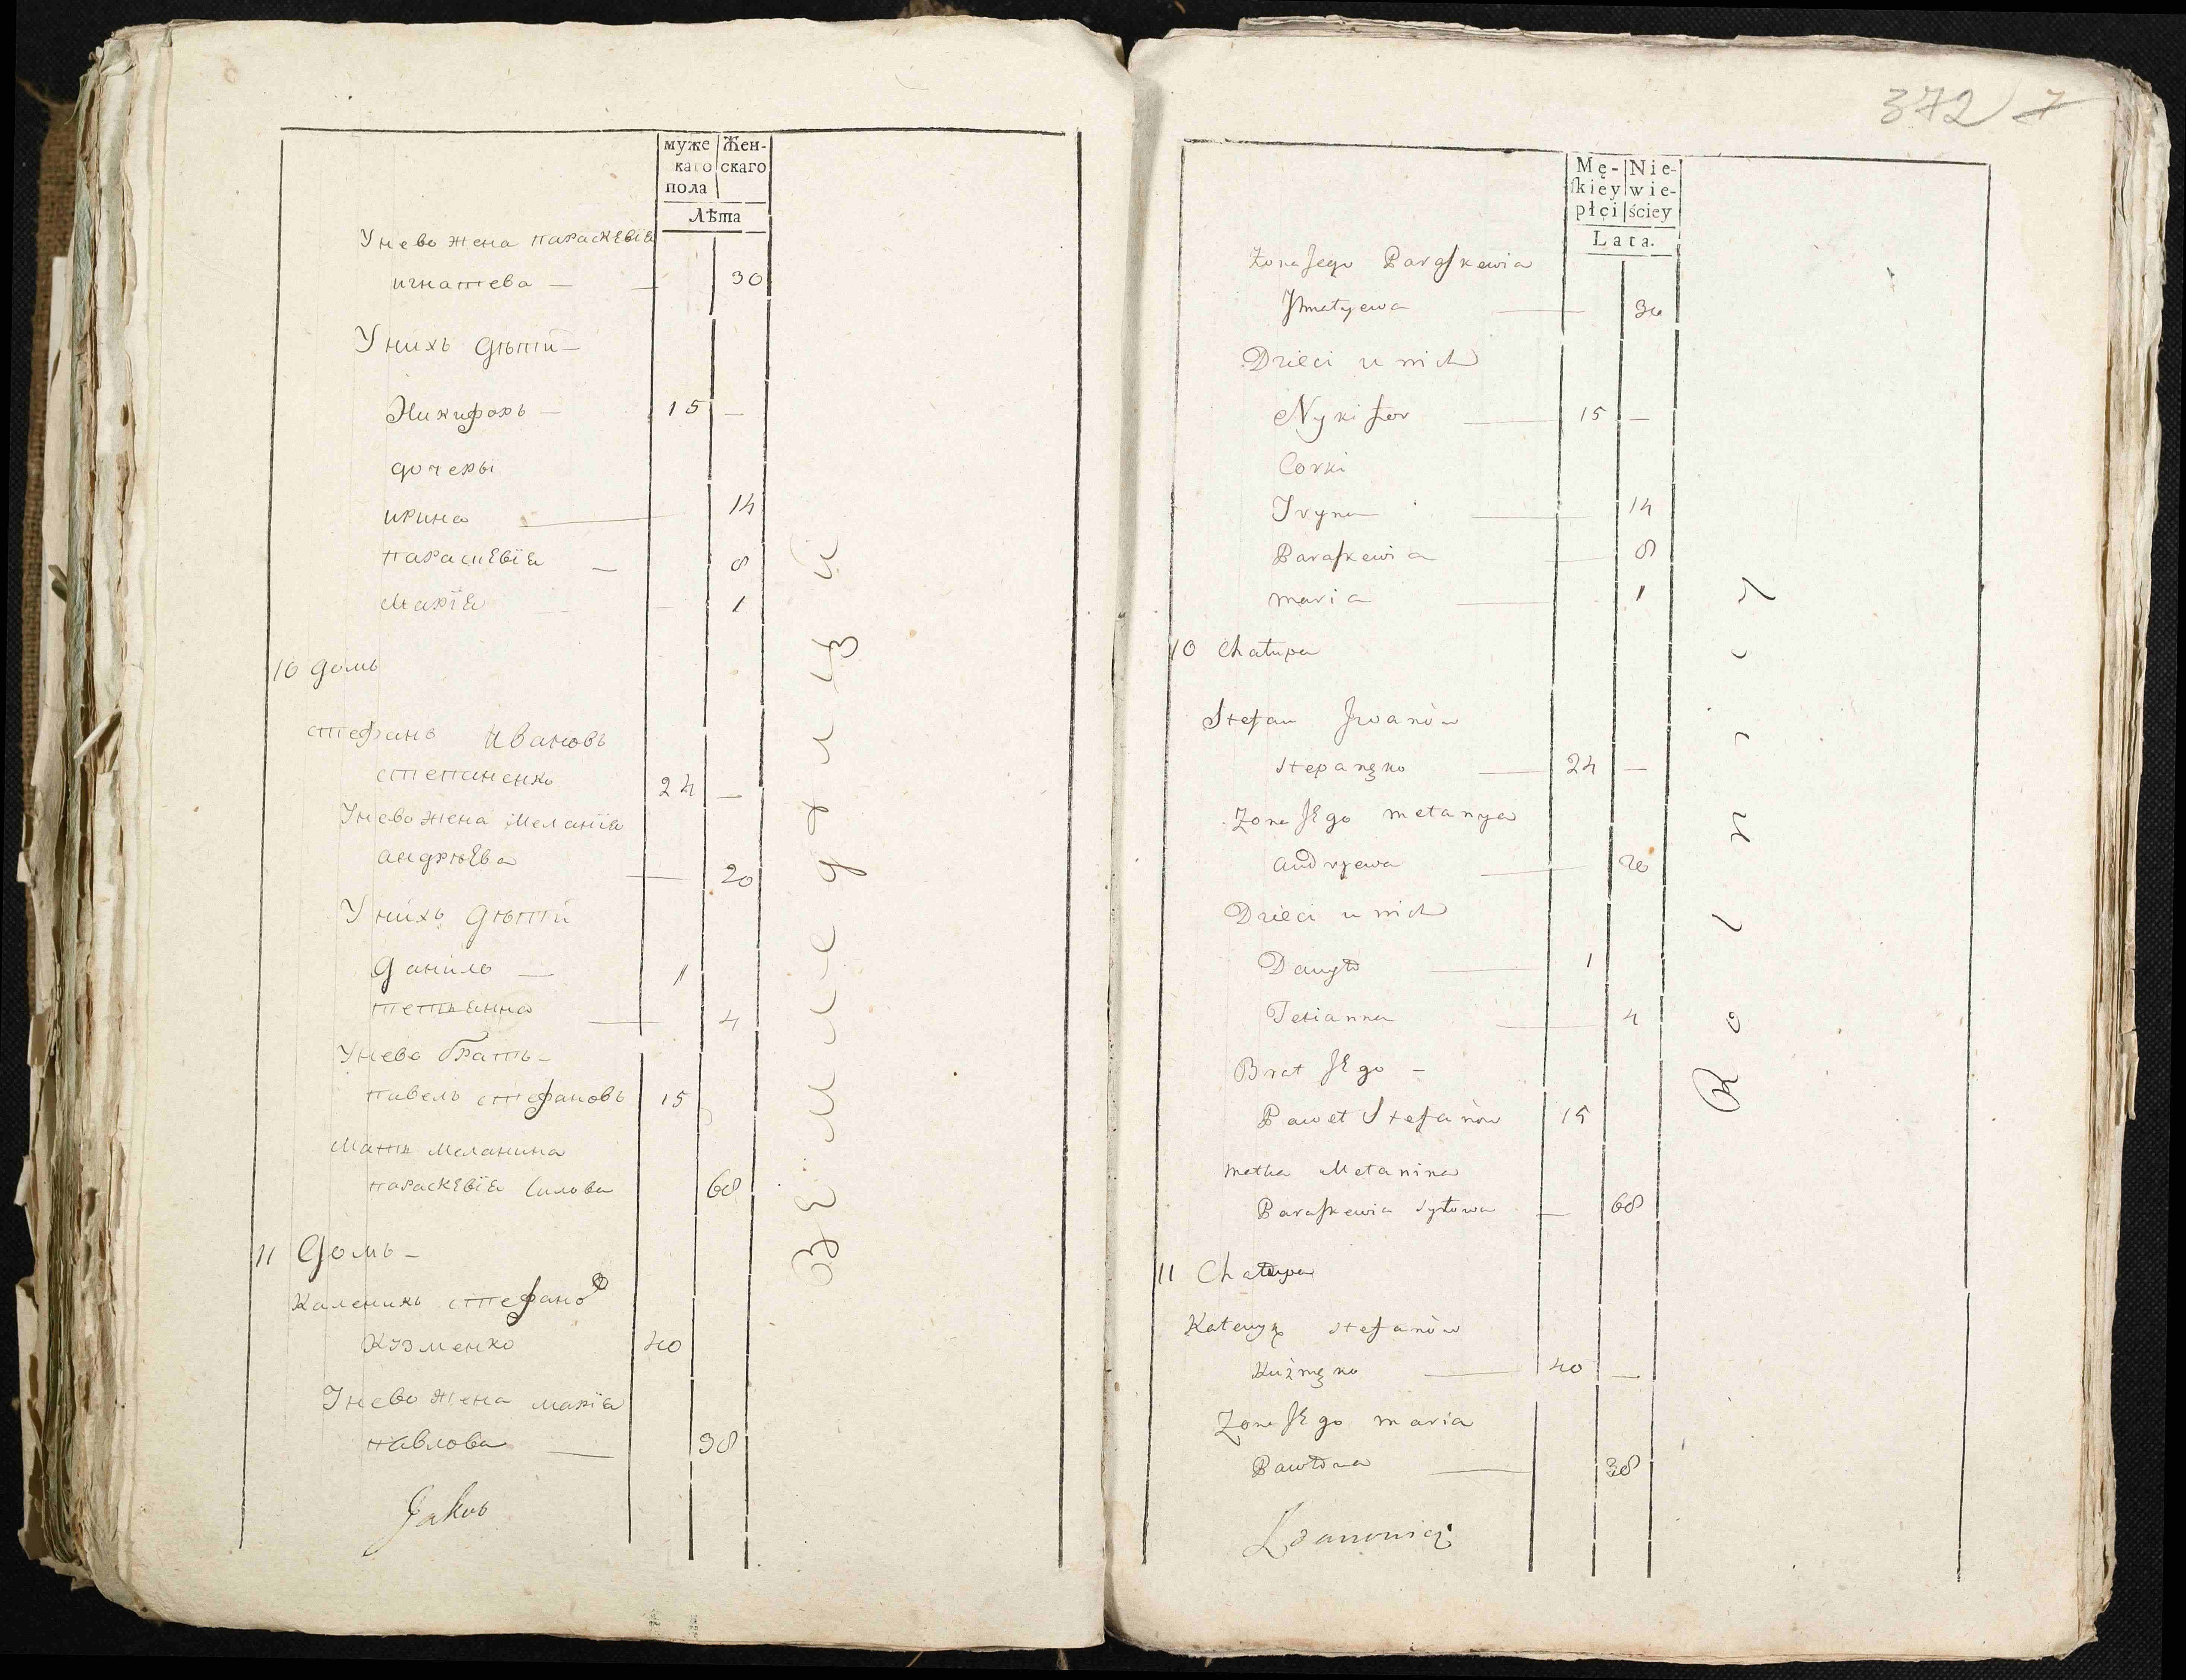 муже
каго
пола
Жен-
скаго
Лѣта
У нево жена параскевія
игнатева — — 30
У нихъ дѣти —
Никифоръ — 15 —
дочеры
ирина — 14
параскевія — 8
Марія — 1
10 домъ
стефанъ Ивановъ
степаненко 24 —
У нево жена Меланія
андрѣева — 20
У нихъ дѣти
данило — 1
тетьянна — 4
У нево братъ —
павелъ стефановъ 15
Мать Меланина
параскевія Силова 68
11 Домъ —
Каленикъ стефановъ
Кузменко 40
У нево жена марія
павлова — 38
Jakub
Земледелцы
372 7
Mę-
skiey
płci
Nie-
wie-
ściey
Lata.
Żona Jego Paraskewia
Jhnatyewa — 30
Dzieci u nich
Nykifor — 15 —
Corki
Iryna — 14
Paraskewia — 8
maria — 1
10 Chałupa
Stefan Jwanów
Stepanęko — 24 —
Zona Jego Mełanya
Andryewa — 20
Dzieci u nich
Danyło — 1
Tetianna — 4
Brat Jego —
Paweł Stefanów 15
Matka Mełanina
Paraskewia Syłowa — 68
11 Chałupa
Kałenyk Stefanów
Kuźmęko — 40 —
Zona Jego maria
Pawłowa — 38
Rolnicy